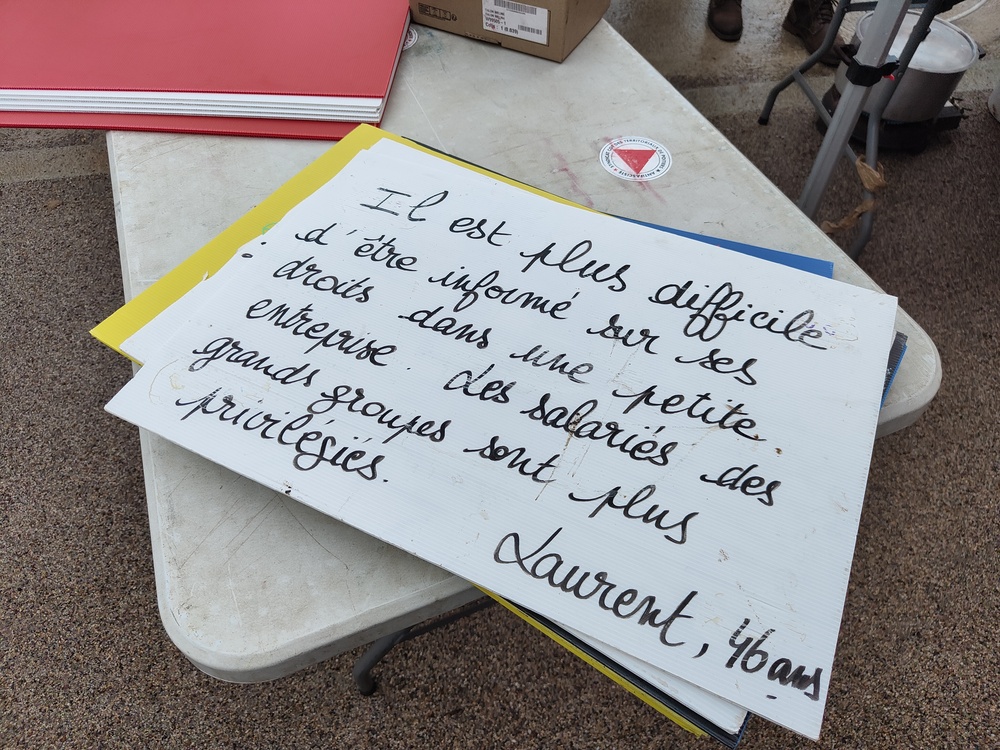 Il est plus difficile
d'être informé sur ses
droits dans une petite
entreprise. Les salariés des
grands groupes sont plus
privilégiés.
Laurent, 46 ans